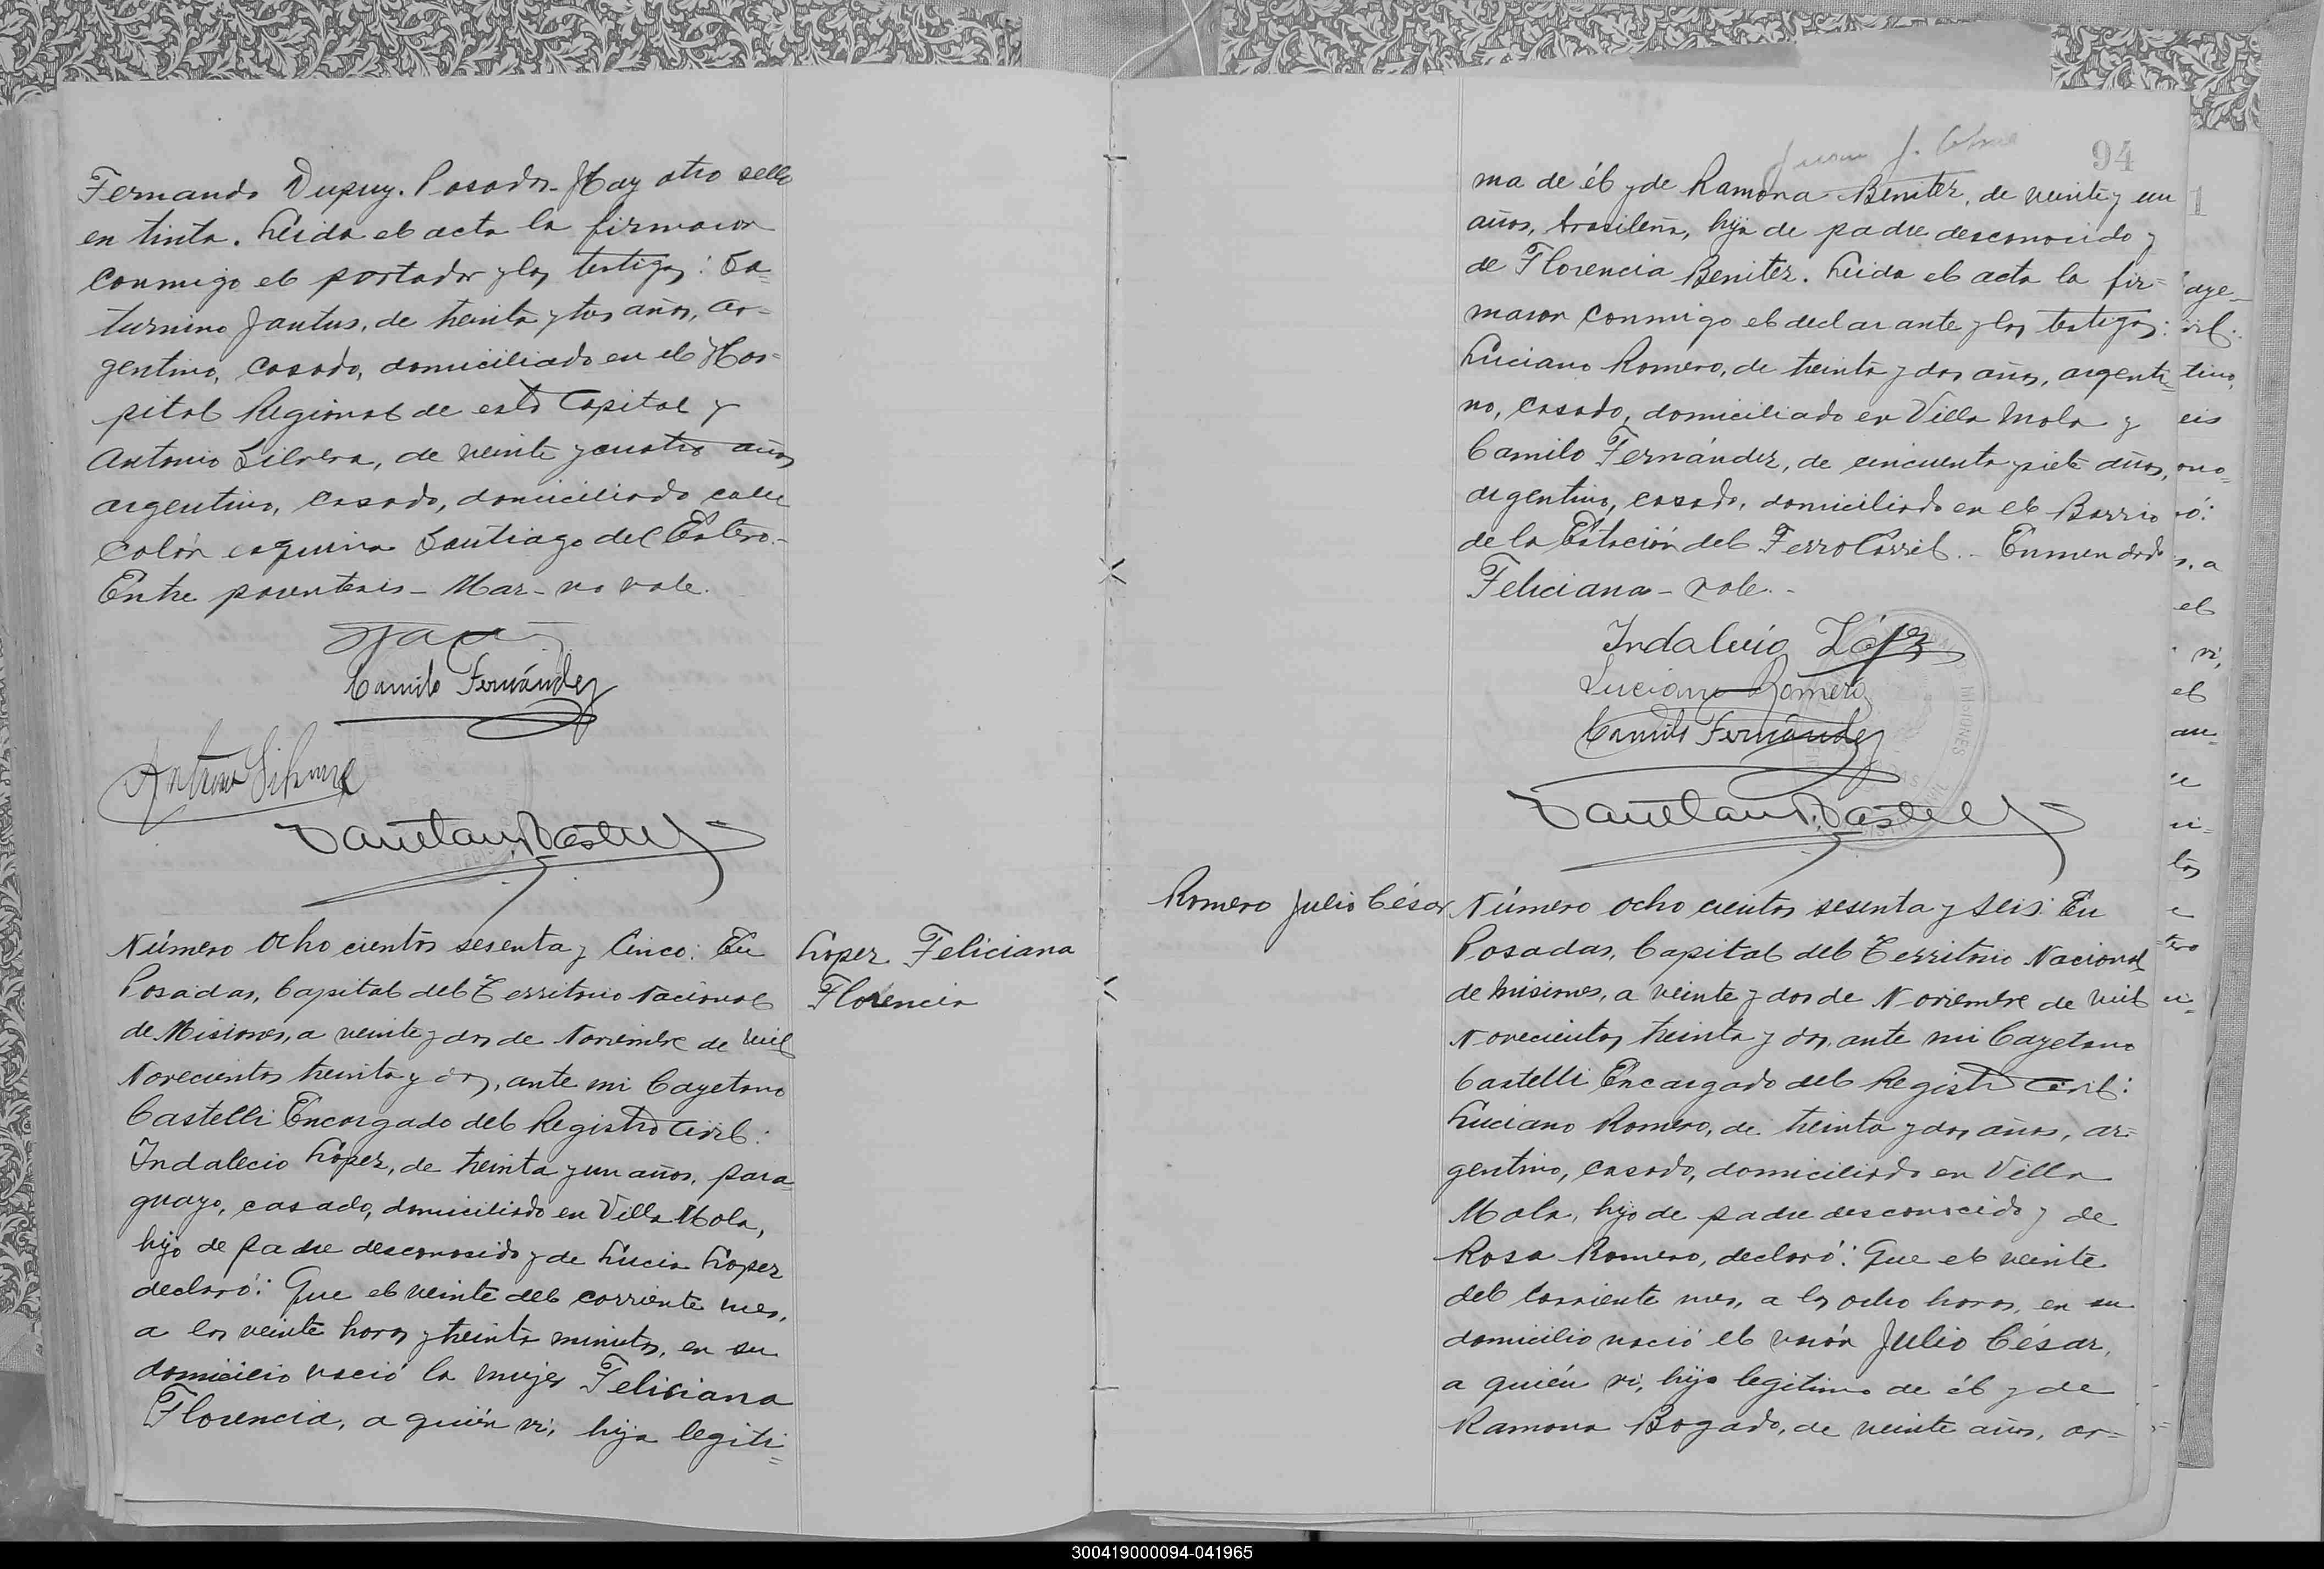 Fernando Dupuy. Posadas. Hay otro sello
en tinta. Leida el acta la firmaron
conmigo el portador y los testigos: Sa=
turnino Jantus, de treinta y tres años, ar=
gentino, casado, domiciliado en el Hos=
pital Regional de esta Capital y
Antonio Silvera, de veinte y cuatro años
argentino, casado, domiciliado calle
Colón esquina Santiago del Estero.-
Entre parentesis - Mar - no vale.
Camilo Fernández
Número ocho cientos sesenta y Cinco: En
Posadas, Capital del Territorio Nacional
de Misiones, a veinte y dos de Noviembre de mil
Novecientos treinta y dos, ante mi Cayetano
Castelli Encargado del Registro Civil:
Indalecio López, de treinta y un años, para=
guayo, casado, domiciliado en Villa Mola,
hijo de padre desconosido y de Lucia López
declaró: Que el veinte del corriente mes,
a las veinte horas y treinta minutos, en su
domicilio nació la mujer Feliciana
Florencia, a quién vi, hija legiti=
López Feliciana
Florencia
94
ma de él y de Ramona Benitez, de veinte y un
años, brasileña, hija de padre desconosido y
de Florencia Benitez. Leida el acta la fir=
maron conmigo el declarante y los testigos:
Luciano Romero, de treinta y dos años, argenti=
no, casado, domiciliado en Villa Mola y
Camilo Fernández, de cincuenta y siete años,
argentino, casado, domiciliado en el Barrio
de la Estación del FerroCarril.- Enmendado
Feliciana - vale.-
Indalecio López
Luciano Romero
Camilo Fernández
Cayetano Castelli
Romero Julio César
Número ocho cientos sesenta y seis: En
Posadas, Capital del Territorio Nacional
de Misiones, a veinte y dos de Noviembre de mil
Novecientos treinta y dos, ante mi Cayetano
Castelli Encargado del Registro Civil:
Luciano Romero, de treinta y dos años, ar=
gentino, casado, domiciliado en Villa
Mola, hijo de padre desconocido y de
Rosa Romero, declaró: Que el veinte
del corriente mes, a las ocho horas, en su
domicilio nació el varón Julio César,
a quién vi, hijo legitimo de él y de
Ramona Bogado, de veinte años, ar=
300419000094-041965